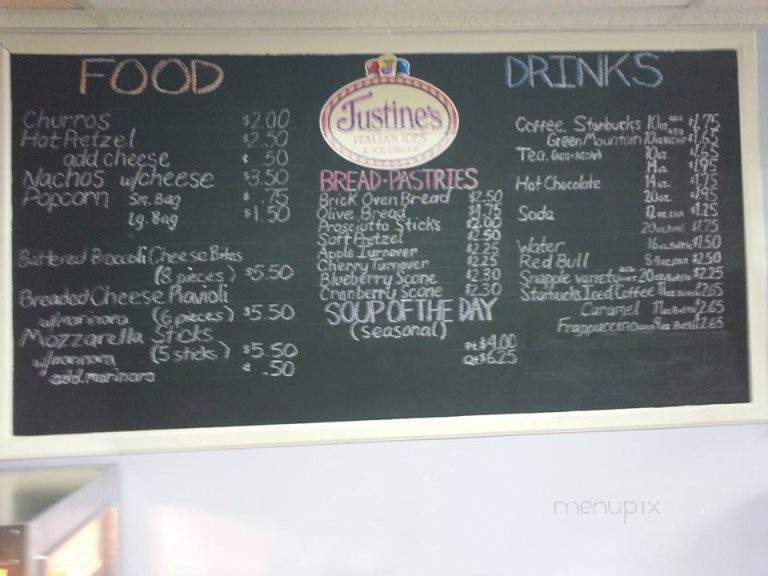 FOOD
Churros $2.00
Hot Pretzel $2.50
add cheese $ .50
Nachos w/cheese $3.50
Popcorn Sm. Bag $ .75
Lg. Bag $1.50
Buttered Broccoli Cheese Bites
(8 pieces) $5.50
Breaded Cheese Ravioli
w/marinara (6 pieces) $5.50
Mozzarella Sticks
w/marinara (5 sticks) $5.50
add marinara .50
J
Justine's
ITALIAN ICES
& ICE CREAM
BREAD-PASTRIES
Brick Oven Bread $2.50
Olive Bread $4.75
Prosciutto Sticks $2.00
Soft Pretzel $2.50
Apple Turnover $2.25
Cherry Turnover $2.25
Blueberry Scone $2.30
Cranberry Scone $2.30
SOUP OF THE DAY
(seasonal)
Pt. $4.00
Qt $6.25
DRINKS
Coffee, Starbucks 10oz $1.75
Green Mountain 10oz $1.65
Tea 10oz
14oz $1.95
Hot Chocolate 14oz $1.75
20oz $1.95
Soda 12oz can $1.25
20oz $1.75
Water 16oz Bottle $1.50
Red Bull 8.4oz can $2.50
Snapple variety 20oz Bottle $2.25
Starbucks Iced Coffee $2.65
Caramel $2.65
Frappuccino $2.65
menupix